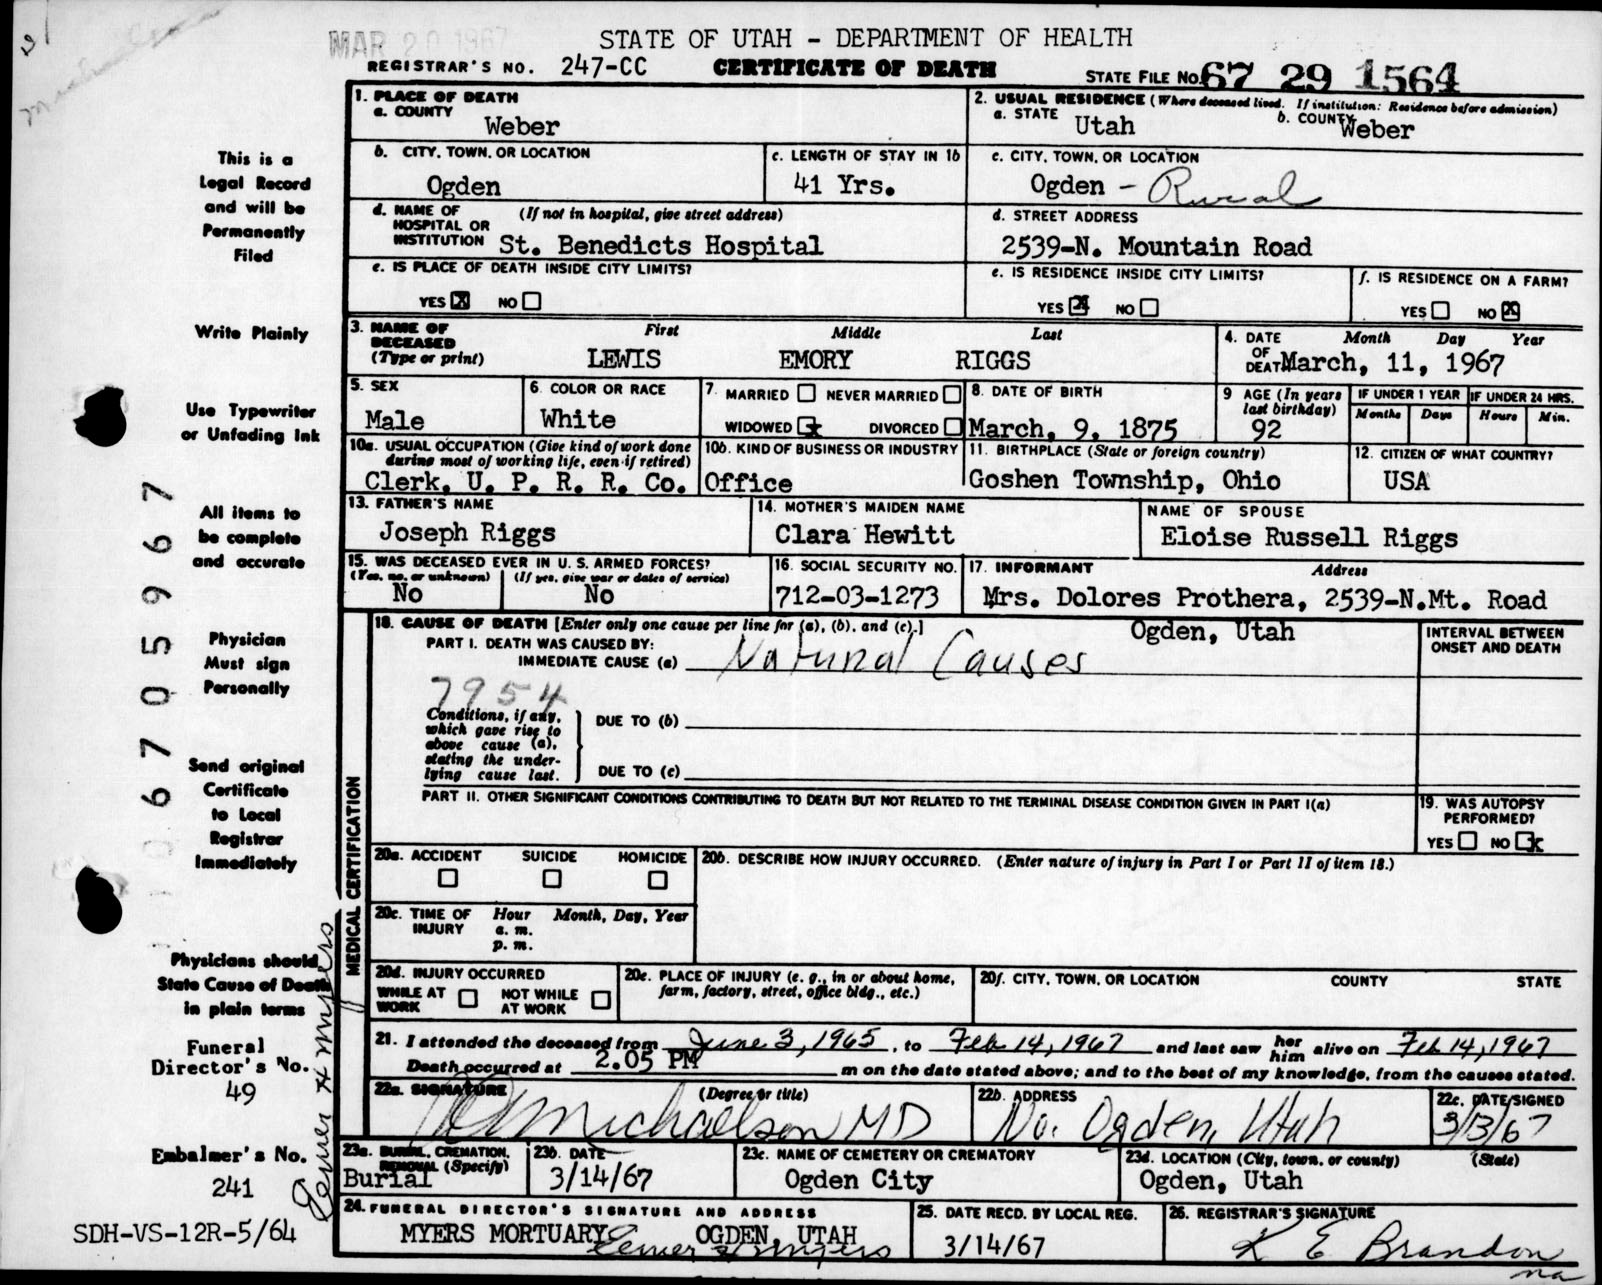 MAR 20 1967
STATE OF UTAH - DEPARTMENT OF HEALTH
REGISTRAR'S NO. 247-CC CERTIFICATE OF DEATH STATE FILE NO. 67 29 1564
1. PLACE OF DEATH
a. COUNTY
Weber
2. USUAL RESIDENCE (Where deceased lived. If institution: Residence before admission)
a. STATE Utah b. COUNTY Weber
b. CITY, TOWN, OR LOCATION
Ogden
c. LENGTH OF STAY IN 1b
41 Yrs.
c. CITY, TOWN, OR LOCATION
Ogden - Rural
d. NAME OF HOSPITAL OR INSTITUTION (If not in hospital, give street address)
St. Benedicts Hospital
d. STREET ADDRESS
2539-N. Mountain Road
e. IS PLACE OF DEATH INSIDE CITY LIMITS?
YES X NO
e. IS RESIDENCE INSIDE CITY LIMITS?
YES X NO
f. IS RESIDENCE ON A FARM?
YES NO X
3. NAME OF DECEASED (Type or print)
First Middle Last
LEWIS EMORY RIGGS
4. DATE OF DEATH Month Day Year
March, 11, 1967
5. SEX
Male
6. COLOR OR RACE
White
7. MARRIED NEVER MARRIED
WIDOWED x DIVORCED
8. DATE OF BIRTH
March, 9, 1875
9 AGE (In years last birthday)
92
IF UNDER 1 YEAR IF UNDER 24 HRS.
Months Days Hours Min.
10a. USUAL OCCUPATION (Give kind of work done during most of working life, even if retired)
Clerk, U. P. R. R. Co.
10b. KIND OF BUSINESS OR INDUSTRY
Office
11. BIRTHPLACE (State or foreign country)
Goshen Township, Ohio
12. CITIZEN OF WHAT COUNTRY?
USA
13. FATHER'S NAME
Joseph Riggs
14. MOTHER'S MAIDEN NAME
Clara Hewitt
NAME OF SPOUSE
Eloise Russell Riggs
15. WAS DECEASED EVER IN U. S. ARMED FORCES?
(Yes, no, or unknown) (If yes, give war or dates of service)
No No
16. SOCIAL SECURITY NO.
712-03-1273
17. INFORMANT Address
Mrs. Dolores Prothera, 2539-N.Mt. Road
Ogden, Utah
18. CAUSE OF DEATH [Enter only one cause per line for (a), (b), and (c).]
PART I. DEATH WAS CAUSED BY:
IMMEDIATE CAUSE (a) Natural Causes
INTERVAL BETWEEN ONSET AND DEATH
7954
Conditions, if any, which gave rise to above cause (a), stating the underlying cause last.
DUE TO (b)
DUE TO (c)
PART II. OTHER SIGNIFICANT CONDITIONS CONTRIBUTING TO DEATH BUT NOT RELATED TO THE TERMINAL DISEASE CONDITION GIVEN IN PART I(a)
19. WAS AUTOPSY PERFORMED?
YES NO x
MEDICAL CERTIFICATION
20a. ACCIDENT SUICIDE HOMICIDE
20b. DESCRIBE HOW INJURY OCCURRED. (Enter nature of injury in Part I or Part II of item 18.)
20c. TIME OF INJURY Hour Month, Day, Year
a. m.
p. m.
20d. INJURY OCCURRED
WHILE AT WORK NOT WHILE AT WORK
20e. PLACE OF INJURY (e. g., in or about home, farm, factory, street, office bldg., etc.)
20f. CITY, TOWN, OR LOCATION COUNTY STATE
21. I attended the deceased from June 3, 1965, to Feb 14, 1967 and last saw her him alive on Feb 14, 1967
Death occurred at 2.05 PM m on the date stated above; and to the best of my knowledge, from the causes stated.
22a. SIGNATURE (Degree or title)
Michaelson MD
22b. ADDRESS
No. Ogden, Utah
22c. DATE SIGNED
3/13/67
23a. BURIAL, CREMATION, REMOVAL (Specify)
Burial
23b. DATE
3/14/67
23c. NAME OF CEMETERY OR CREMATORY
Ogden City
23d. LOCATION (City, town, or county) (State)
Ogden, Utah
24. FUNERAL DIRECTOR'S SIGNATURE AND ADDRESS
MYERS MORTUARY OGDEN, UTAH
25. DATE RECD. BY LOCAL REG.
3/14/67
26. REGISTRAR'S SIGNATURE
K E Brandon
na
This is a
Legal Record
and will be
Permanently
Filed
Write Plainly
Use Typewriter
or Unfading Ink
All items to
be complete
and accurate
Physician
Must sign
Personally
Send original
Certificate
to Local
Registrar
Immediately
Physicians should
State Cause of Death
in plain terms
Funeral
Director's No.
49
Embalmer's No.
241
SDH-VS-12R-5/64
06705967